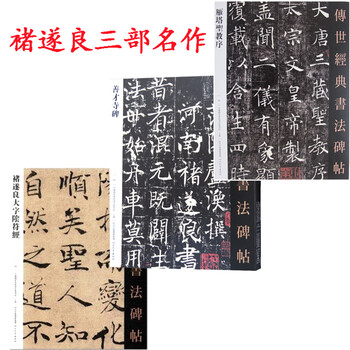 褚遂良三部名作
雁塔聖教序
傳世經典書法碑帖
大唐三藏聖教序
太宗文皇帝製
蓋聞二儀有象顯
覆載以含生四時
善才寺碑
書法碑帖
范陽盧渙撰
河南褚遂良書
昔者混元既闢
法母始舟車莫用
褚遂良大字陰符經
書法碑帖
相推而變化
順矣聖人
自然之道不